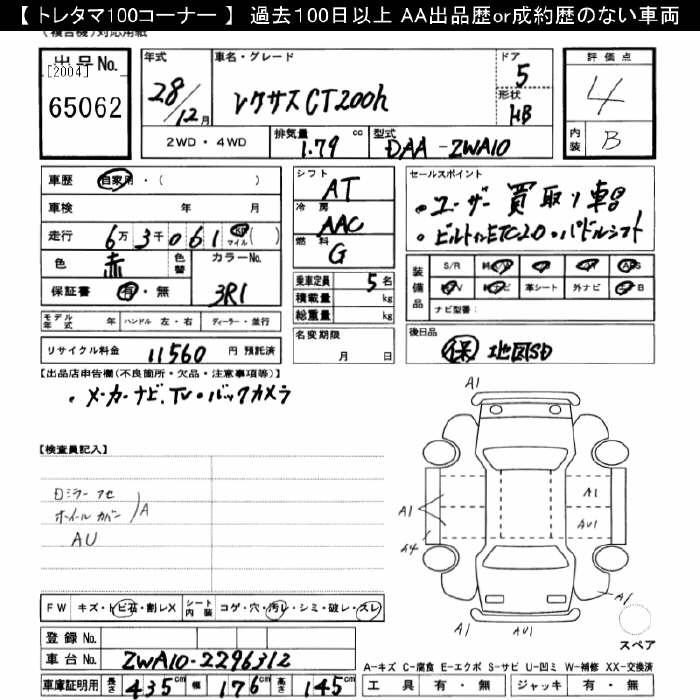 【 トレタマ100コーナー 】 過去100日以上 AA出品歴or成約歴のない車両
(複合機)対応用紙
出品No.
[2004]
65062
年式
28/12月
車名・グレード
レクサスCT200h
ドア
5
形状
HB
2WD・4WD
排気量
1.79 cc
型式
DAA-ZWA10
評価点
4
内装
B
車歴 自家用・( )
車検 年 月
走行 6万3千061 マイル( )
色 赤
色替
カラーNo.
3R1
保証書 有・無
モデル年式 年 ハンドル 左・右 ディーラー・並行
リサイクル料金 11560 円 預託済
シフト
AT
冷房
AAC
燃料
G
乗車定員 5名
積載量 kg
総重量 kg
名変期限
月 日
セールスポイント
・ユーザー買取り車
・ビルトインETC2.0・パドルシフト
装備品
S/R
革シート 外ナビ
ナビ型番:
後日品
保 地図SD
【出品店申告欄(不良箇所・欠品・注意事項等)】
・メーカーナビ.TV・バックカメラ
【検査員記入】
ホイールカバー A
AU
A1
A1
A1
AU1
A4
A1
A1
AU1
FW キズ・トビ石・割レX
シート内装 コゲ・穴・汚レ・シミ・破レ・スレ
登録No.
車台No. ZWA10-2296312
車庫証明用 長さ 435cm 幅 176cm 高さ 145cm
スペア
A-キズ C-腐食 E-エクボ S-サビ U-凹ミ W-補修 XX-交換済
工具 有・無 ジャッキ 有・無